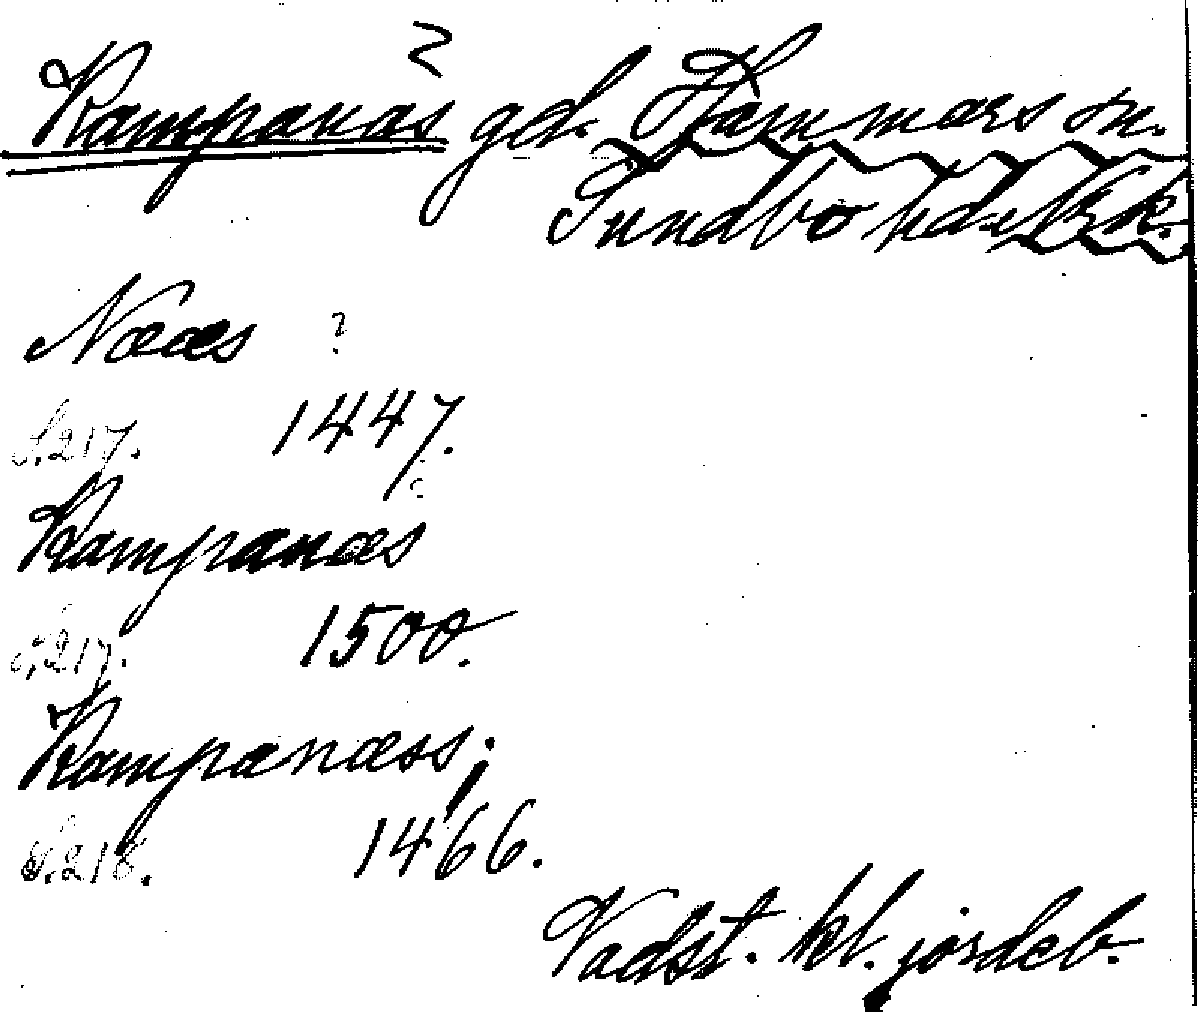 2
Kampanäs gd. Hammars sn.
Sundbo hd. Nk.
Nææs ?
S. 217. 1447.
Kampanæs
S. 217. 1500.
Kampanæss;
S. 218. 1466.
Vadst. kl. jordeb.